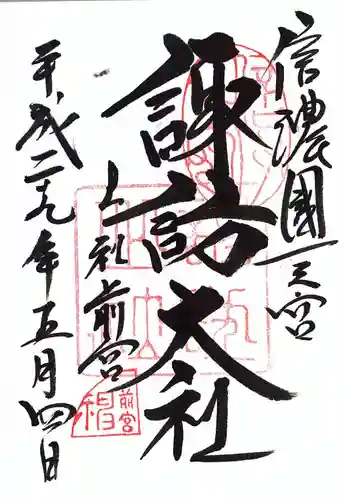 信濃國一之宮
諏訪大社
上社前宮
平成二九年五月四日
前宮